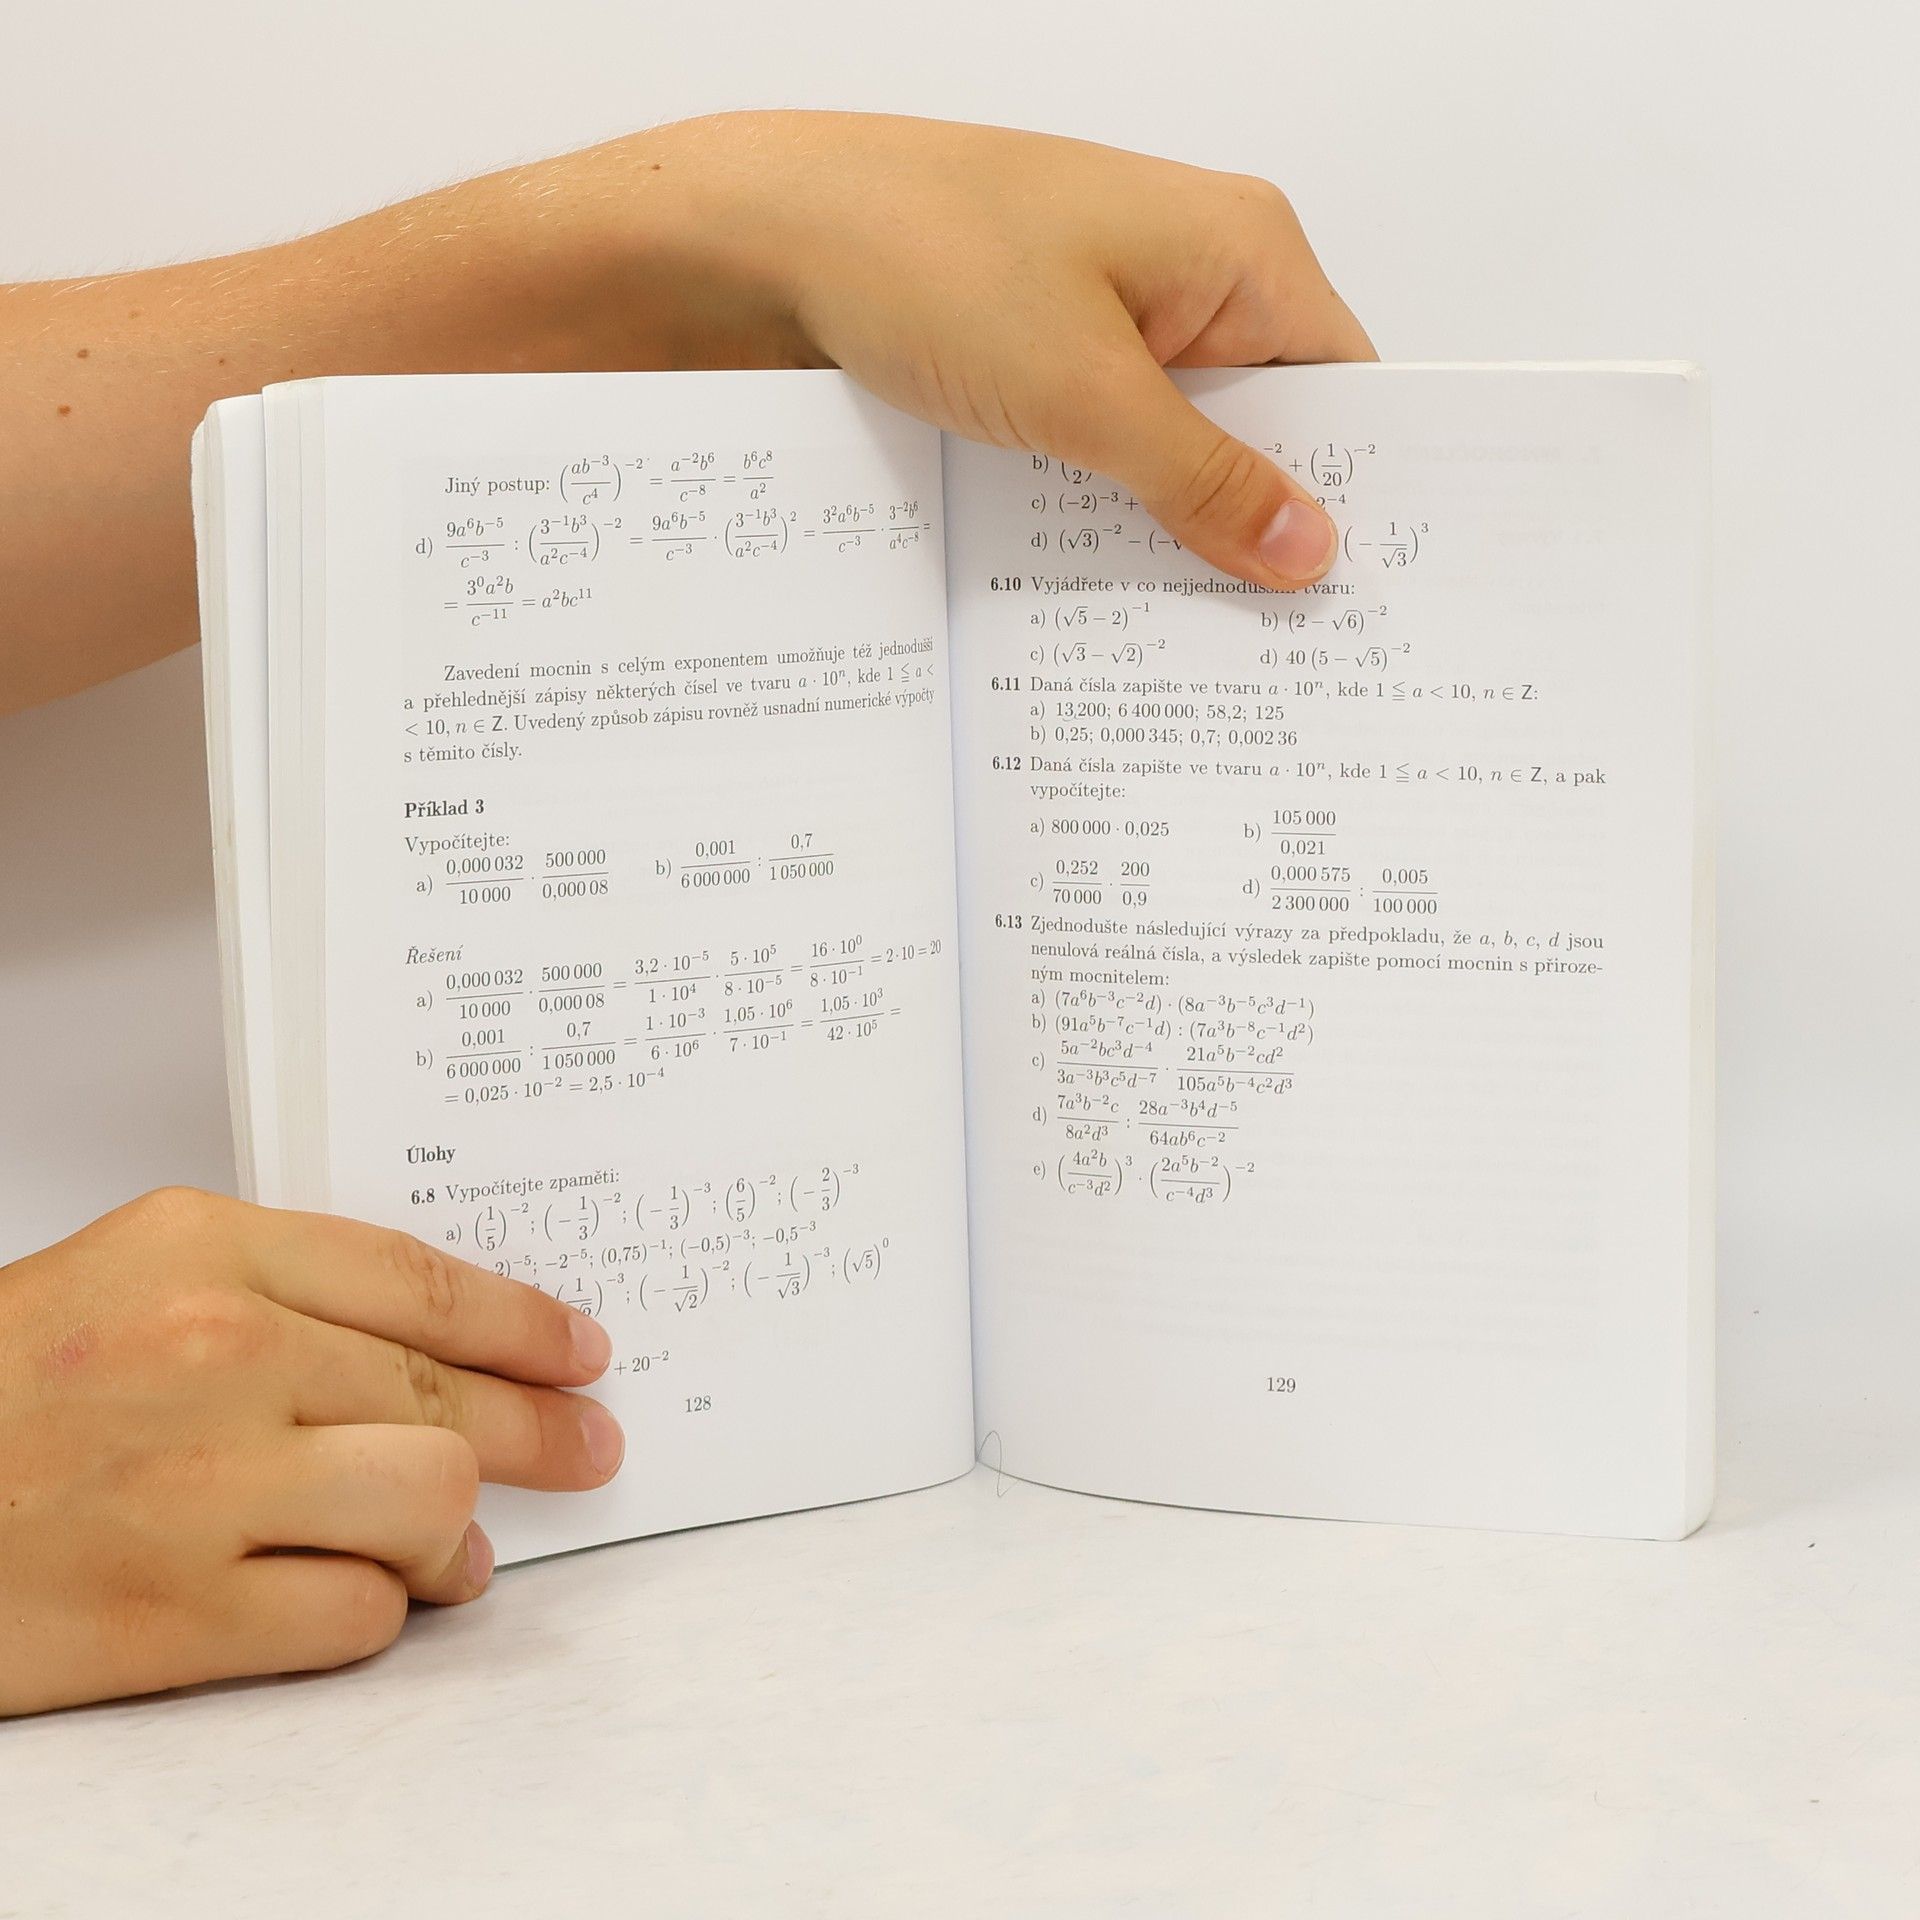 Jiný postup: (ab⁻³/c⁴)⁻² = a⁻²b⁶/c⁻⁸ = b⁶c⁸/a²
d) 9a⁶b⁻⁵/c⁻³ : (3⁻¹b³/a²c⁻⁴)⁻² = 9a⁶b⁻⁵/c⁻³ · (3⁻¹b³/a²c⁻⁴)² = 3²a⁶b⁻⁵/c⁻³ · 3⁻²b⁶/a⁴c⁻⁸ =
= 3⁰a²b/c⁻¹¹ = a²bc¹¹
Zavedení mocnin s celým exponentem umožňuje též jednodušší
a přehlednější zápisy některých čísel ve tvaru a · 10ⁿ, kde 1 ≦ a <
< 10, n ∈ Z. Uvedený způsob zápisu rovněž usnadní numerické výpočty
s těmito čísly.
Příklad 3
Vypočítejte:
a) 0,000 032/10 000 · 500 000/0,000 08 b) 0,001/6 000 000 : 0,7/1 050 000
Řešení
a) 0,000 032/10 000 · 500 000/0,000 08 = 3,2 · 10⁻⁵/1 · 10⁴ · 5 · 10⁵/8 · 10⁻⁵ = 16 · 10⁰/8 · 10⁻¹ = 2 · 10 = 20
b) 0,001/6 000 000 : 0,7/1 050 000 = 1 · 10⁻³/6 · 10⁶ · 1,05 · 10⁶/7 · 10⁻¹ = 1,05 · 10³/42 · 10⁵ =
= 0,025 · 10⁻² = 2,5 · 10⁻⁴
Úlohy
6.8 Vypočítejte zpaměti:
a) (1/5)⁻²; (−1/3)⁻²; (−1/3)⁻³; (6/5)⁻²; (−2/3)⁻³
−2)⁻⁵; −2⁻⁵; (0,75)⁻¹; (−0,5)⁻³; −0,5⁻³
⁻³; (−1/√2)⁻²; (−1/√3)⁻³; (√5)⁰
+ 20⁻²
128
b) ⁻² + (1/20)⁻²
c) (−2)⁻³ + 2⁻⁴
d) (√3)⁻² − (−√ (−1/√3)³
6.10 Vyjádřete v co tvaru:
a) (√5 − 2)⁻¹ b) (2 − √6)⁻²
c) (√3 − √2)⁻² d) 40 (5 − √5)⁻²
6.11 Daná čísla zapište ve tvaru a · 10ⁿ, kde 1 ≦ a < 10, n ∈ Z:
a) 13,200; 6 400 000; 58,2; 125
b) 0,25; 0,000 345; 0,7; 0,002 36
6.12 Daná čísla zapište ve tvaru a · 10ⁿ, kde 1 ≦ a < 10, n ∈ Z, a pak
vypočítejte:
a) 800 000 · 0,025 b) 105 000/0,021
c) 0,252/70 000 · 200/0,9 d) 0,000 575/2 300 000 : 0,005/100 000
6.13 Zjednodušte následující výrazy za předpokladu, že a, b, c, d jsou
nenulová reálná čísla, a výsledek zapište pomocí mocnin s přiroze-
ným mocnitelem:
a) (7a⁶b⁻³c⁻²d) · (8a⁻³b⁻⁵c³d⁻¹)
b) (91a⁵b⁻⁷c⁻¹d) : (7a³b⁻⁸c⁻¹d²)
c) 5a⁻²bc³d⁻⁴/3a⁻³b³c⁵d⁻⁷ · 21a⁵b⁻²cd²/105a⁵b⁻⁴c²d³
d) 7a³b⁻²c/8a²d³ : 28a⁻³b⁴d⁻⁵/64ab⁶c⁻²
e) (4a²b/c⁻³d²)³ · (2a⁵b⁻²/c⁻⁴d³)⁻²
129